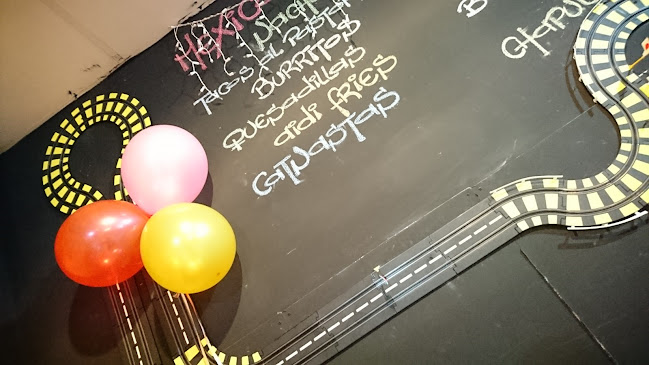 Mexic
Nach
Tacos al Pastor
BURRITOS
Quesadillas
didi fries
Catnastas
Chapul